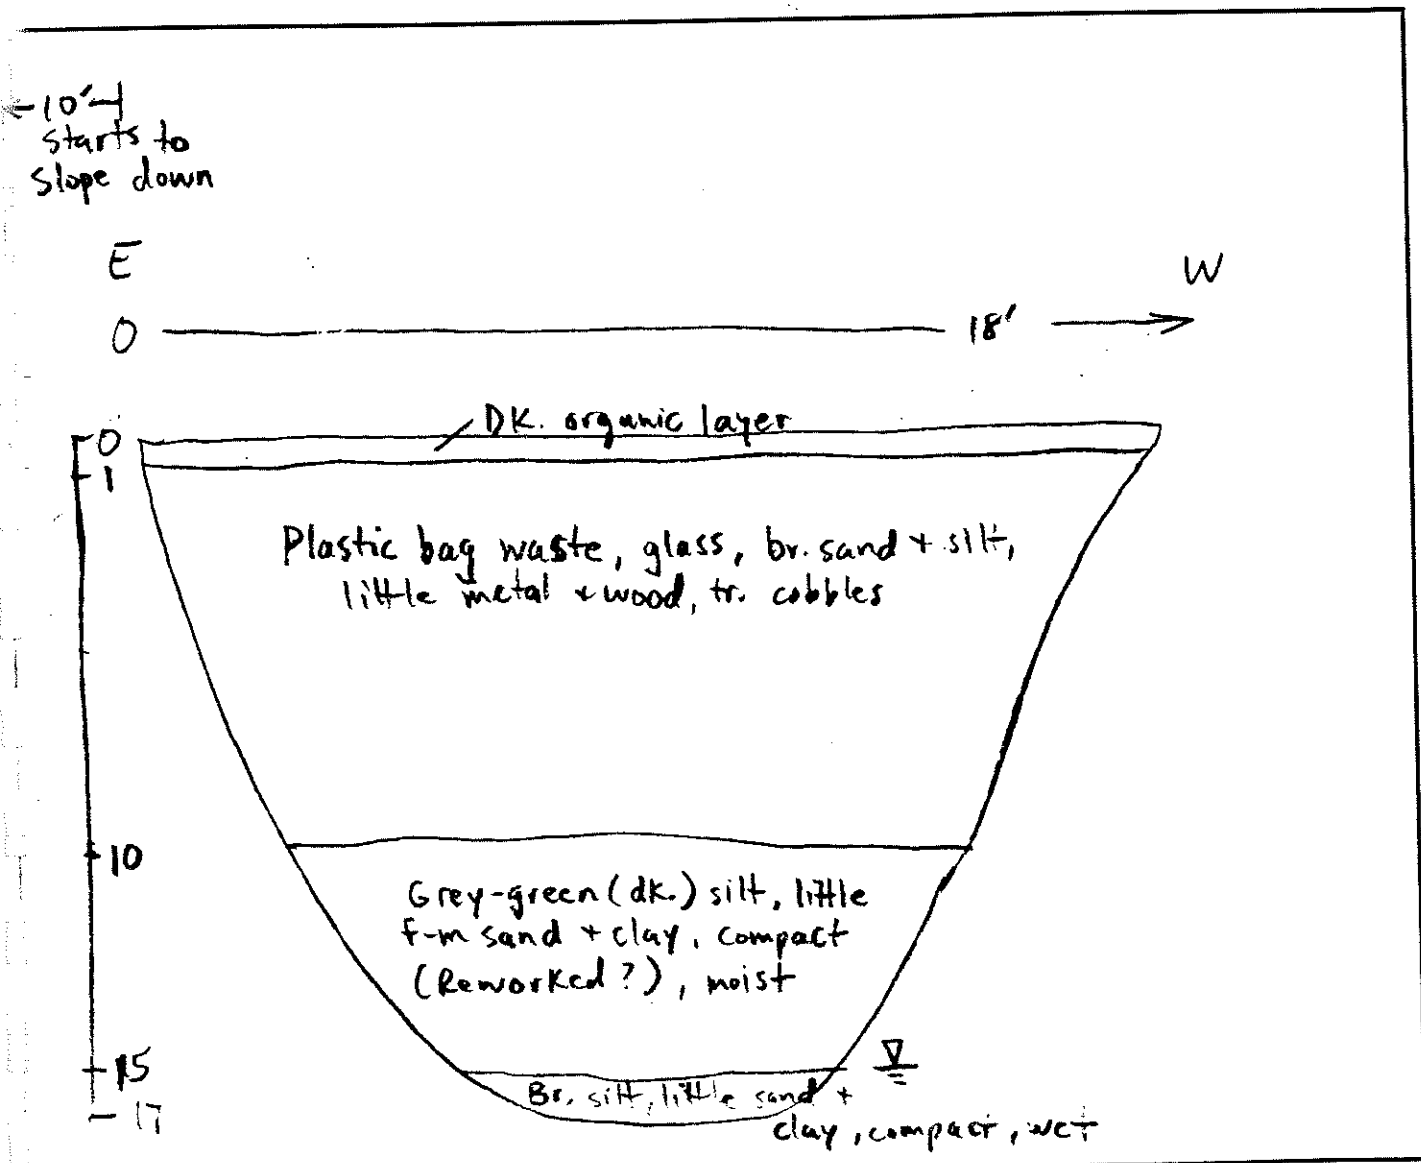 10'
starts to
slope down
E
W
0
18'
DK. organic layer
0
1
Plastic bag waste, glass, br. sand + silt,
little metal + wood, tr. cobbles
10
Grey-green (dk.) silt, little
f-m sand + clay, compact
(Reworked?), moist
15
Br. silt, little sand +
17
clay, compact, wet